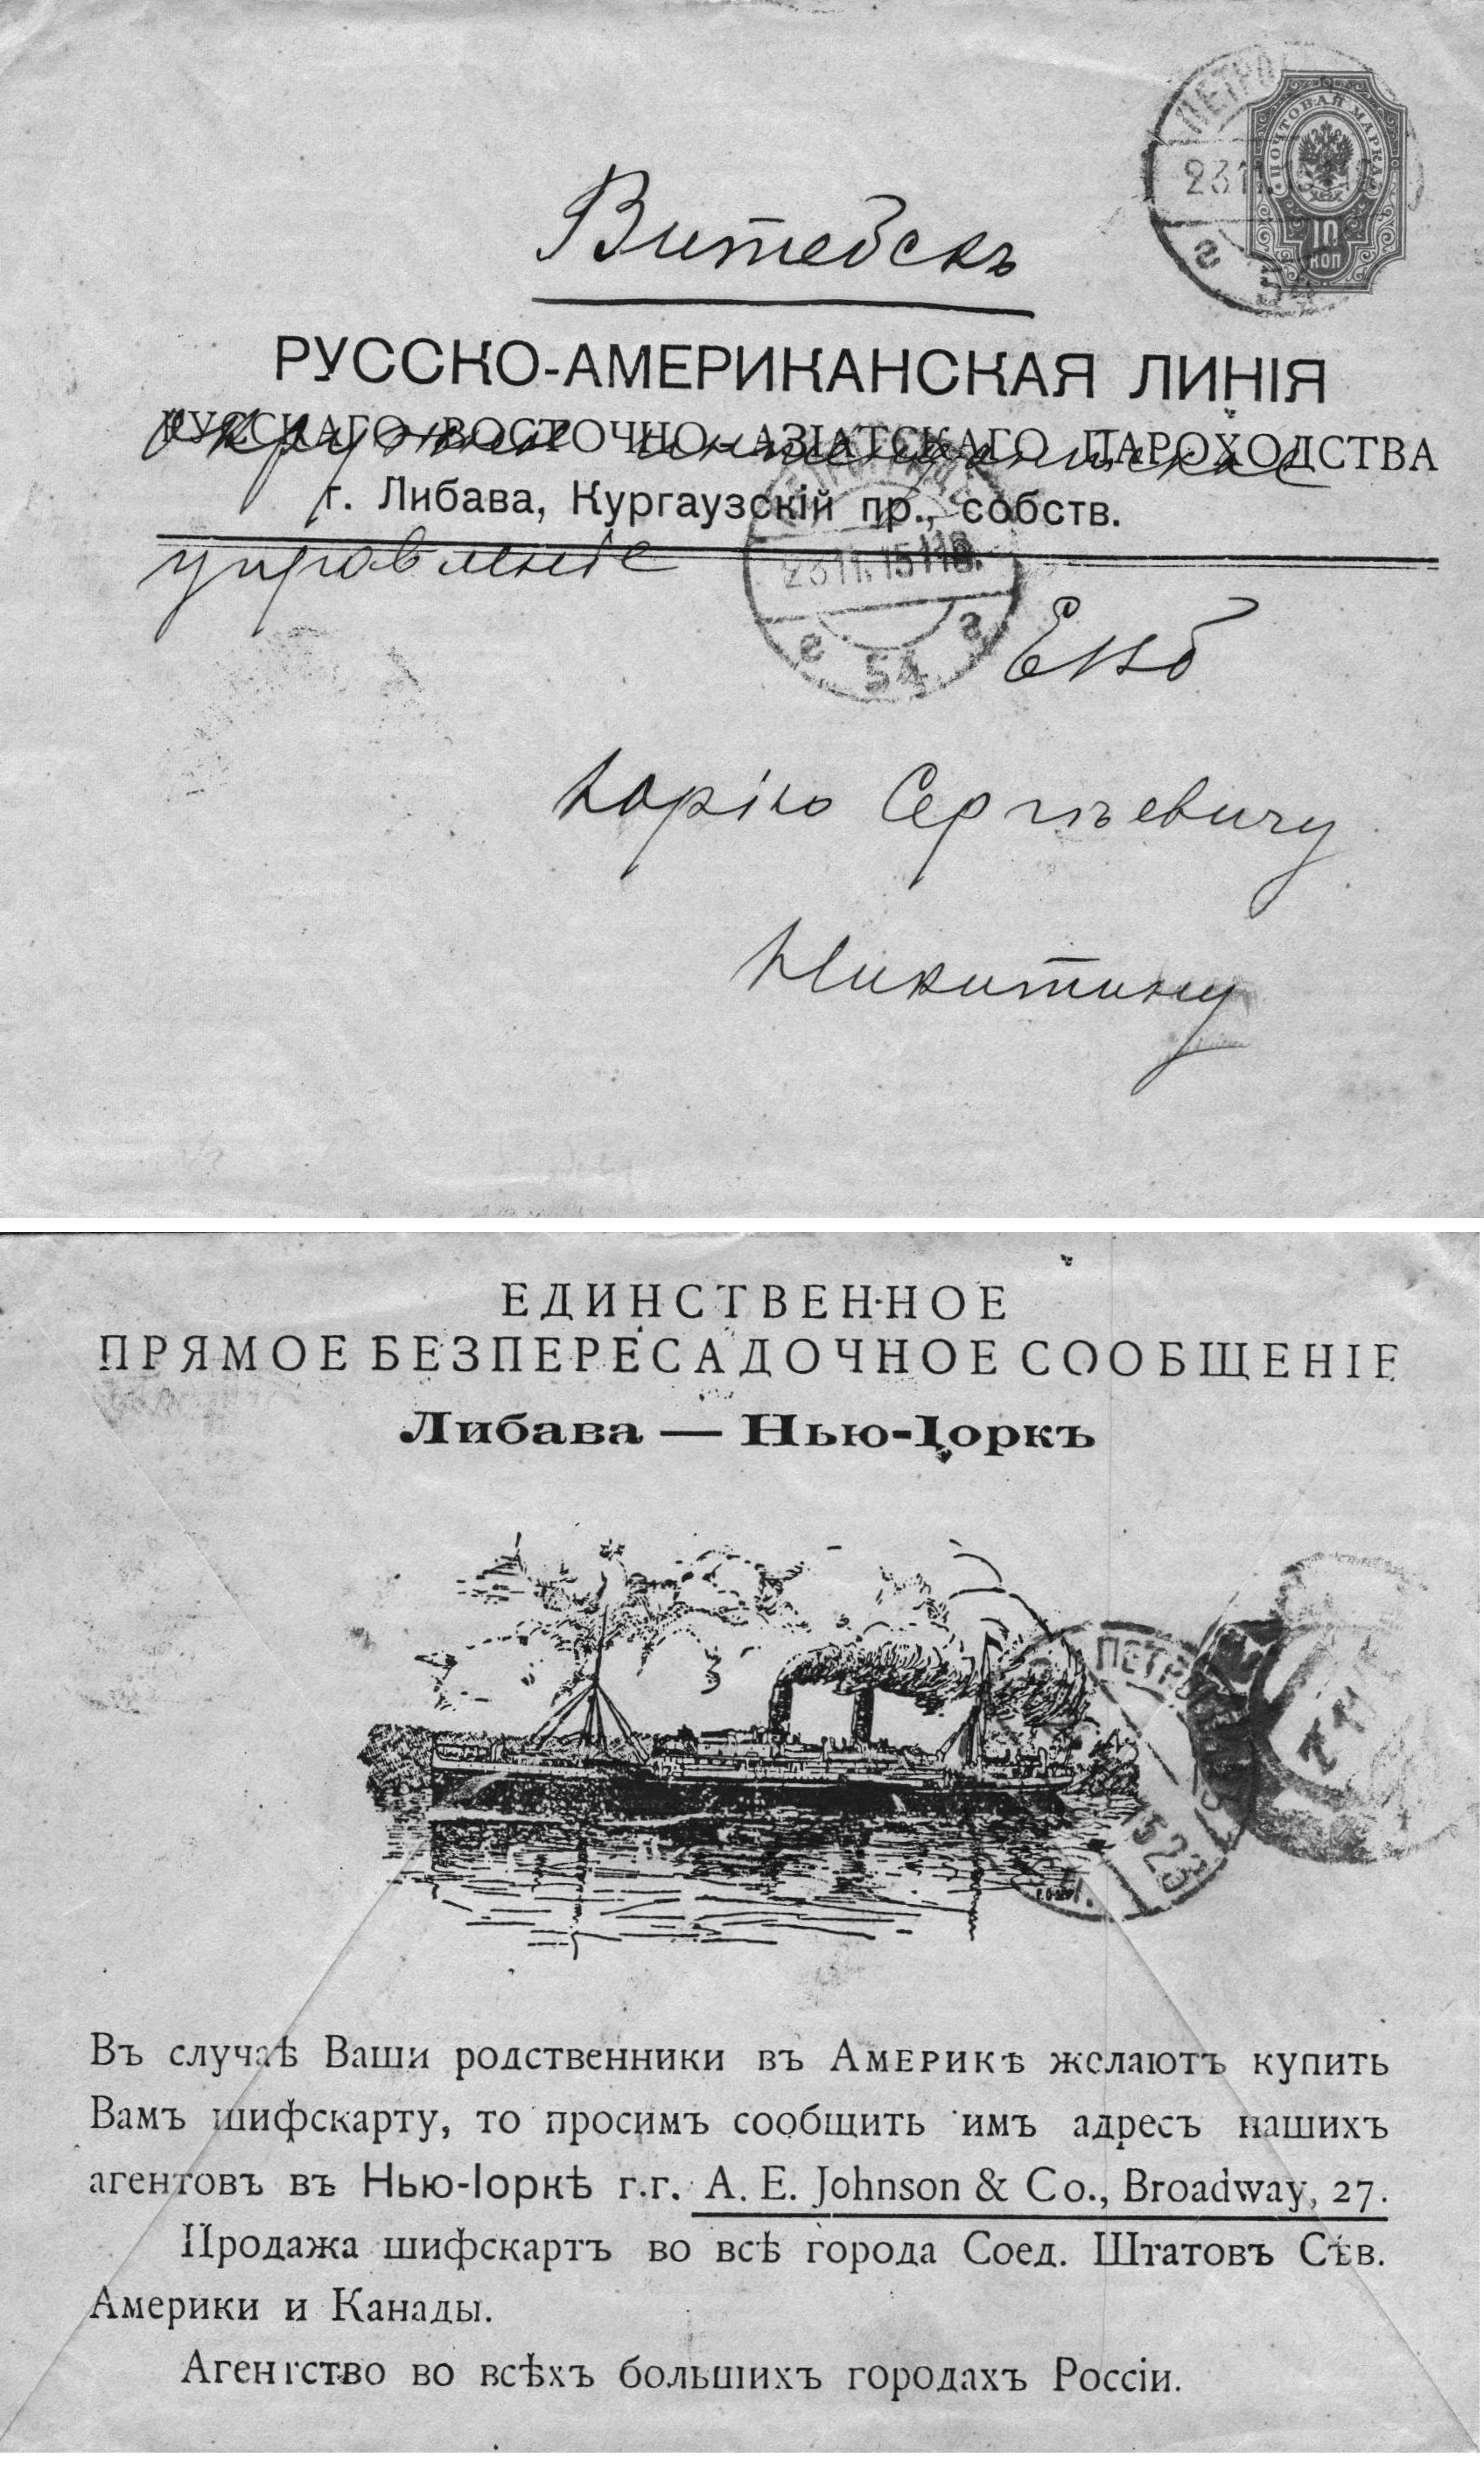 ПОЧТОВАЯ МАРКА
10
КОП
2
Витебскъ
РУССКО-АМЕРИКАНСКАЯ ЛИНІЯ
РУССКАГО ВОСТОЧНО-АЗІАТСКАГО ПАРОХОДСТВА
окружное интендантское
г. Либава, Кургаузскій пр., собств.
управленіе
23 11. 15 11
г 54 г
Евб
Юрію Сергѣевичу
Никитину
ЕДИНСТВЕННОЕ
ПРЯМОЕ БЕЗПЕРЕСАДОЧНОЕ СООБЩЕНІЕ
Либава — Нью-Іоркъ
ПЕТРОГРАДЪ
15 23
Въ случаѣ Ваши родственники въ Америкѣ желаютъ купить
Вамъ шифскарту, то просимъ сообщить имъ адресъ нашихъ
агентовъ въ Нью-Іоркѣ г.г. A. E. Johnson & Co., Broadway, 27.
Продажа шифскартъ во всѣ города Соед. Штатовъ Сѣв.
Америки и Канады.
Агентство во всѣхъ большихъ городахъ Россіи.